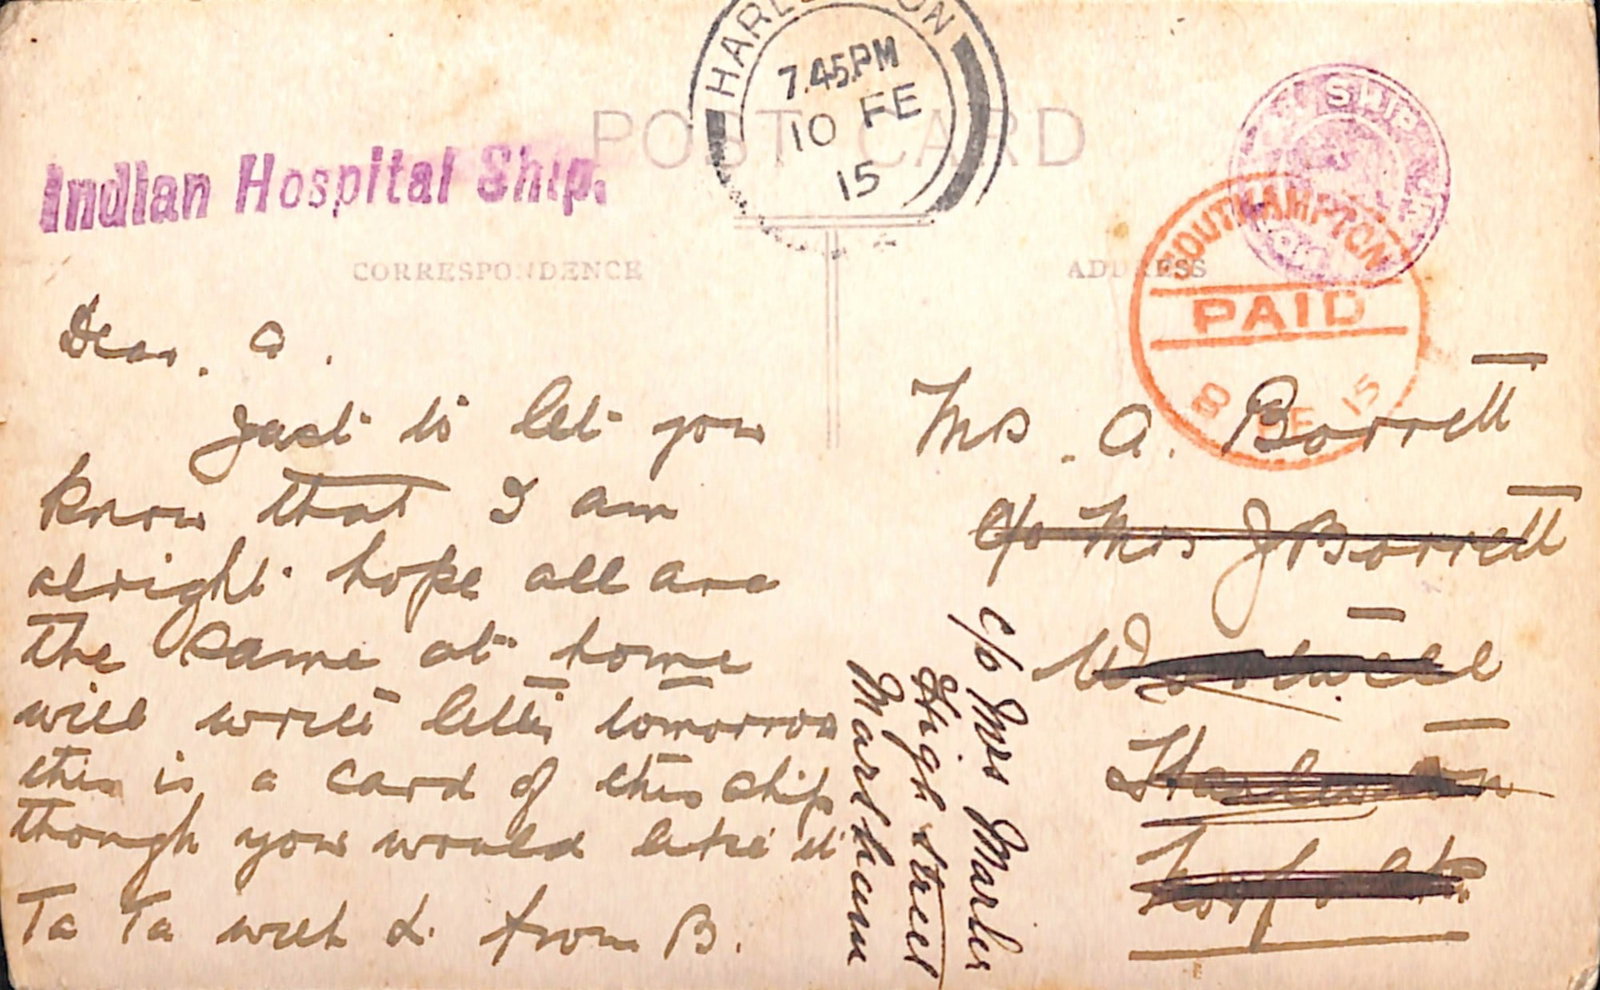 HARLESTON
7.45PM
10 FE
15
POST CARD
SHIP
Indian Hospital Ship.
SOUTHAMPTON
PAID
8 FE 15
CORRESPONDENCE
ADDRESS
Dear. A.
Just to let you
know that I am
alright hope all are
the same at home
will write letter tomorrow
this is a card of this ship
though you would like it
Ta Ta with L. from B.
Mrs. A. Borrett
c/o Mrs J Borrett
Wortwell
Harleston
Norfolk
c/o Mrs Marler
High Street
Marsham